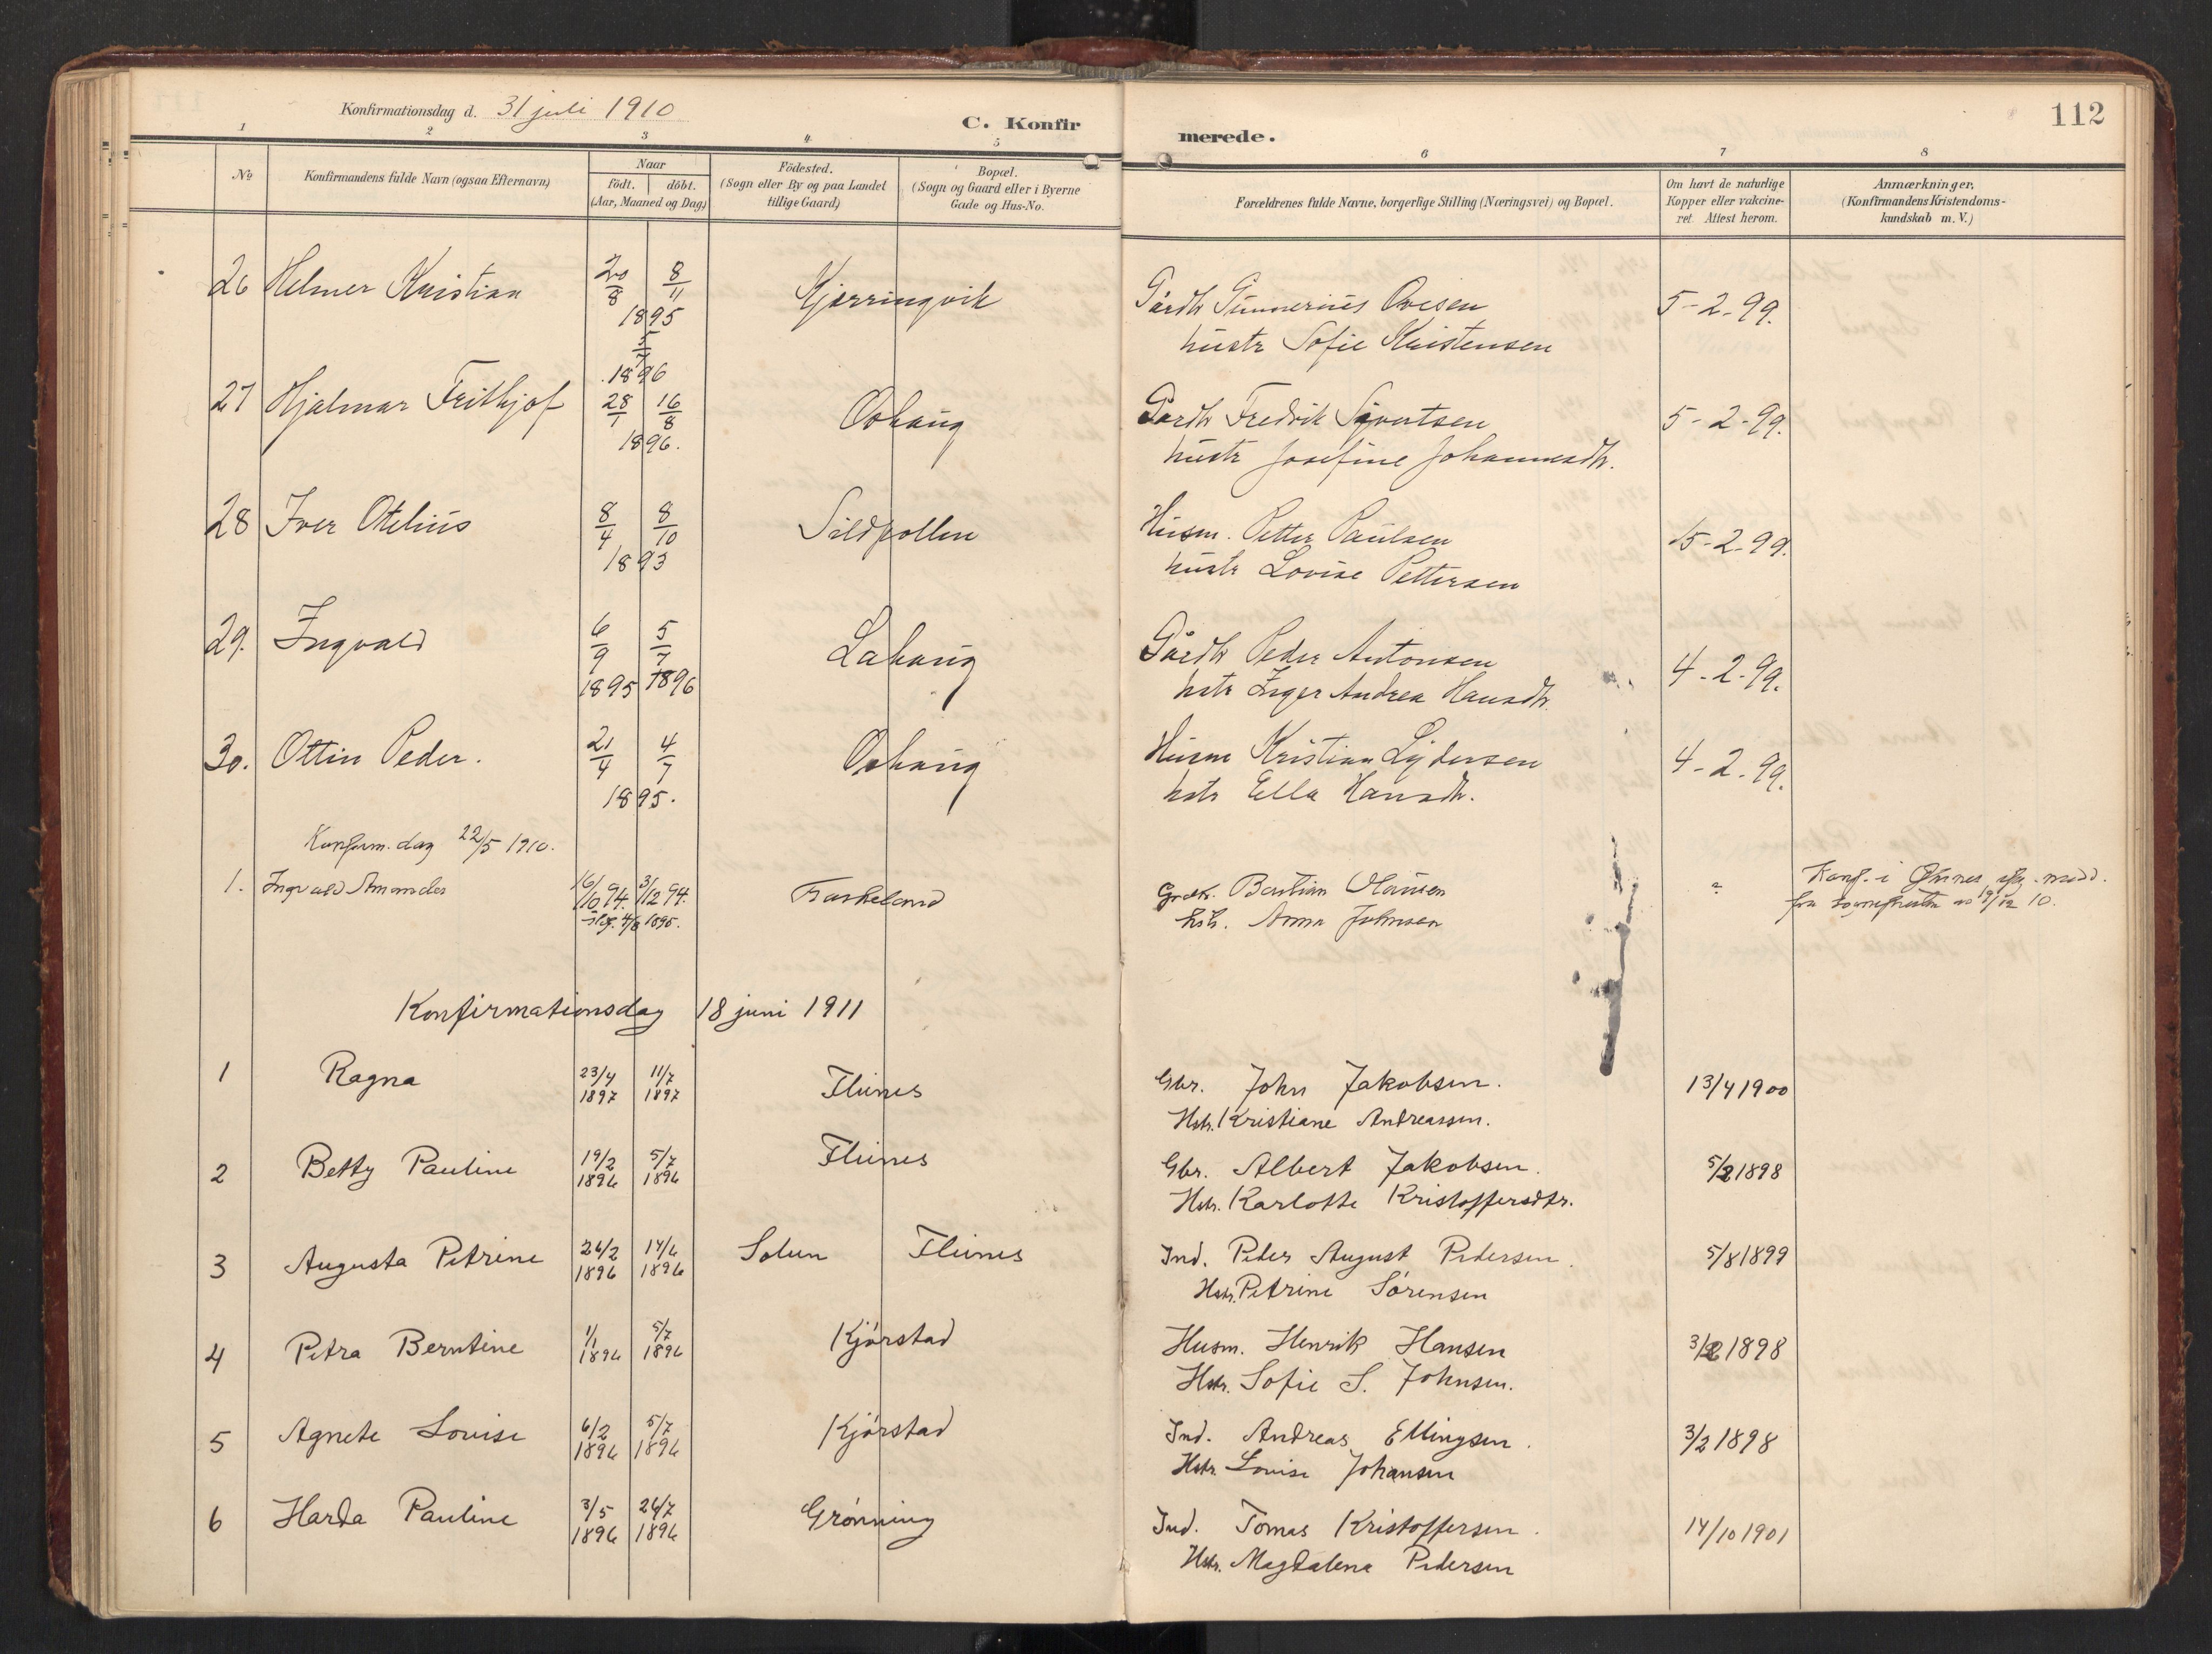 Konfirmationsdag d. 31 juli 1910
C. Konfirmerede.
112
1 2 3 4 5 6 7 8
No
Konfirmandens fulde Navn (ogsaa Efternavn)
Naar
födt. döbt.
(Aar, Maaned og Dag)
Födested.
(Sogn eller By og paa Landet
tillige Gaard)
Bopæl.
(Sogn og Gaard eller i Byerne
Gade og Hus-No.
Forældrenes fulde Navne, borgerlige Stilling (Næringsvei) og Bopæl.
Om havt de naturlige
Kopper eller vakcine-
ret. Attest herom.
Anmærkninger.
(Konfirmandens Kristendoms-
kundskab m. V.)
26 Helmer Kristian 20/8 8/11 Kjerringvik Gårdb Gunnerius Ovesen 5-2-99.
1895 hustr Sofie Kristensen
5/7
1896
27 Hjalmar Frithjof 28/1 16/8 Ovhaug Gårdb Fredrik Sivertsen 5-2-99.
1896. hustr Josefine Johannesdtr.
28 Iver Otelius 8/4 8/10 Sildpollen Husm. Petter Paulsen 15-2-99.
1893 hustr Lovise Pettersen
29. Ingvald 6/9 5/7 Lahaug Gårdb Peder Antonsen 4-2-99.
1895 1896 hstr Inger Andrea Hansdtr.
30. Ottin Peder. 21/4 4/7 Ovhaug Husm Kristian Lydersen 4-2-99.
1895. hstr Ella Hansdtr.
Konfirm. dag 22/5 1910.
1. Ingvald Amandus 16/10 94. 3/12 94. Gbr. Bastian " Konf. i
4/8 1895. hstr. Anna Johnsen fra 10.
Konfirmationsdag 18 juni 1911
1 Ragna 23/4 11/7 Flunes Gbr. John Jakobsen. 13/4 1900
1897 1897 Hstr. Kristiane Andreassen.
2 Betty Pauline 19/2 5/7 Flunes Gbr. Albert Jakobsen. 5/2 1898
1896 1896 Hstr. Karlotte Kristoffersdtr.
3 Augusta Petrine 26/2 14/6 Solum Flunes Ind. Peder August Pedersen. 5/8 1899
1896 1896 Hstr. Petrine Sörensen
4 Petra Berntine 1/1 5/7 Kjörstad Husm. Henrik Hansen 3/2 1898
1896 1896 Hstr. Sofie S. Johnsen.
5 Agnete Louise 6/2 5/7 Kjörstad Ind. Andreas Ellingsen. 3/2 1898
1896 1896 Hstr Louise Johansen
6 Harda Pauline 3/5 26/7 Grönning Ind. Tomas Kristoffersen. 14/10 1901
1896 1896 Hstr. Magdalena Pedersen